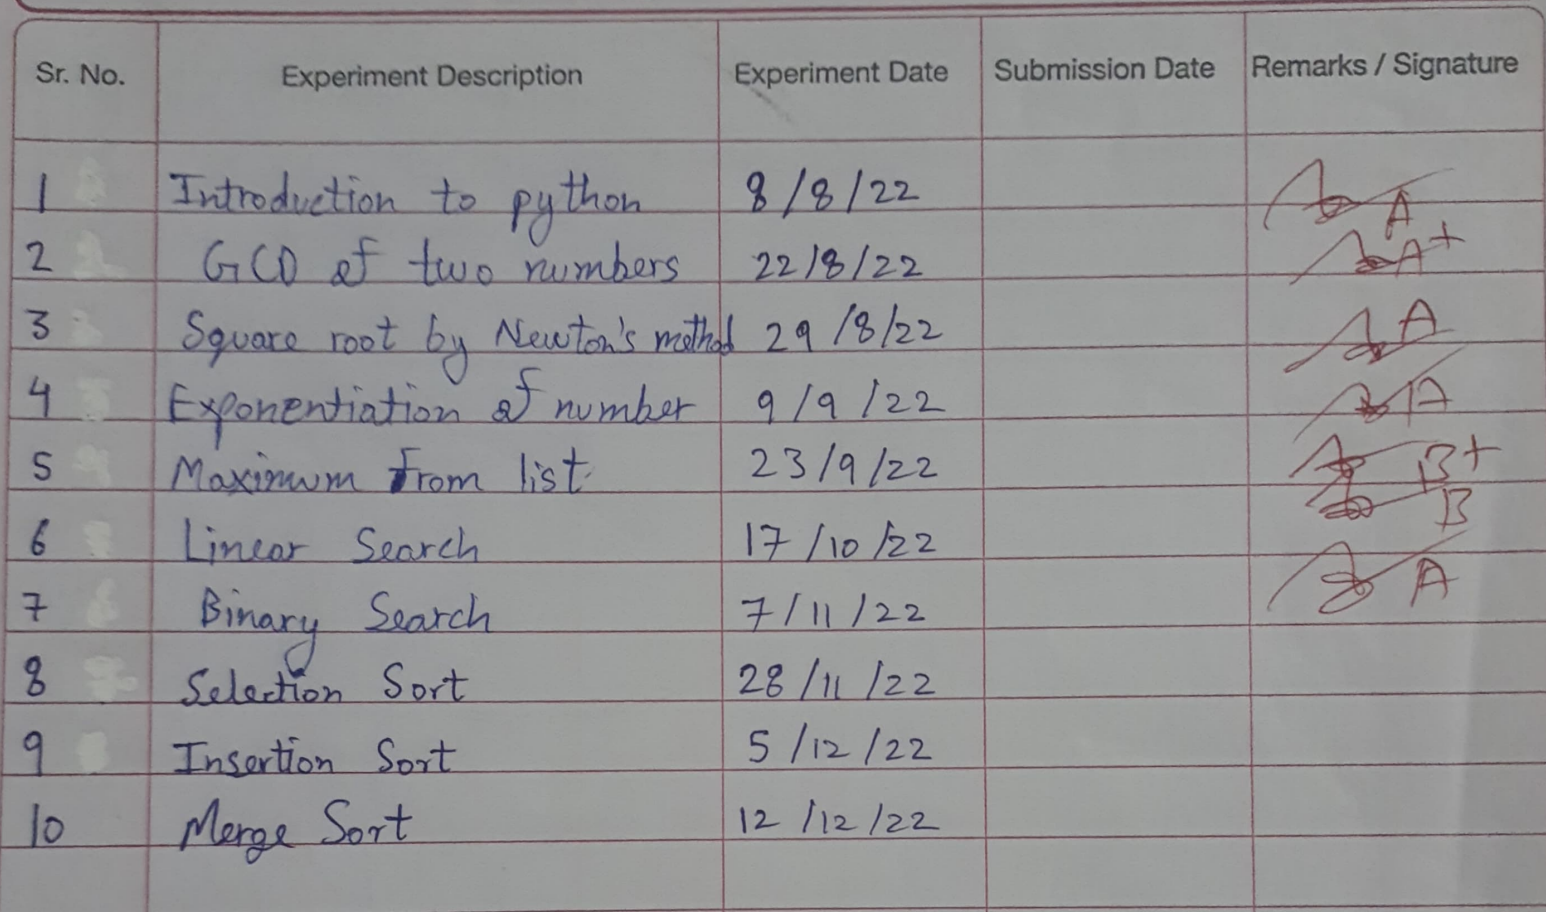 Sr. No. Experiment Description Experiment Date Submission Date Remarks / Signature
1 Introduction to python 8/8/22 A
2 GCD of two numbers 22/8/22 A+
3 Square root by Newton's method 29/8/22 A
4 Exponentiation of number 9/9/22 A
5 Maximum from list 23/9/22 B+
6 Linear Search 17/10/22 B
7 Binary Search 7/11/22 A
8 Selection Sort 28/11/22
9 Insertion Sort 5/12/22
10 Merge Sort 12/12/22